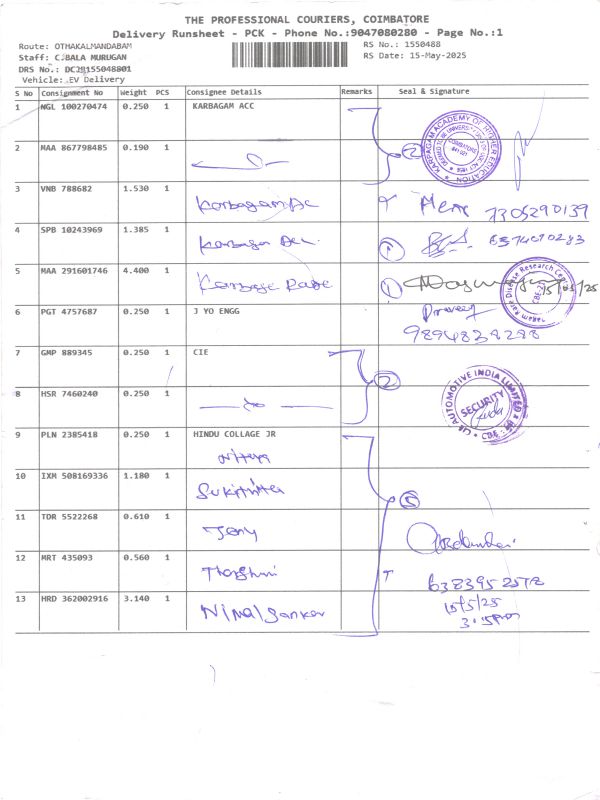 THE PROFESSIONAL COURIERS, COIMBATORE
Delivery Runsheet - PCK - Phone No.:9047080280 - Page No.:1
Route: OTHAKALMANDABAM
RS No.: 1550488
Staff: C.BALA MURUGAN
RS Date: 15-May-2025
DRS No.: DCJB155048801
Vehicle: EV Delivery
S No Consignment No Weight PCS Consignee Details Remarks Seal & Signature
1 NGL 100270474 0.250 1 KARBAGAM ACC
KARPAGAM ACADEMY OF HIGHER EDUCATION
COIMBATORE
641 021
2 MAA 867798485 0.190 1
2
3 VNB 788682 1.530 1
Karbagam Acc
7305290139
4 SPB 10243969 1.385 1
Karbagam Acc
5 MAA 291601746 4.400 1
1
15/05/25
Rare Disease Research
6 PGT 4757687 0.250 1 J YO ENGG
Praveen
9894838288
7 GMP 889345 0.250 1 CIE
2
AUTOMOTIVE INDIA LIMITED
SECURITY
CBE
8 HSR 7460240 0.250 1
9 PLN 2385418 0.250 1 HINDU COLLAGE JR
Nithya
10 IXM 508169336 1.180 1
5
11 TDR 5522268 0.610 1
Jeny
12 MRT 435093 0.560 1
13 HRD 362002916 3.140 1
Nimal Sankar
15/5/25
3.15pm